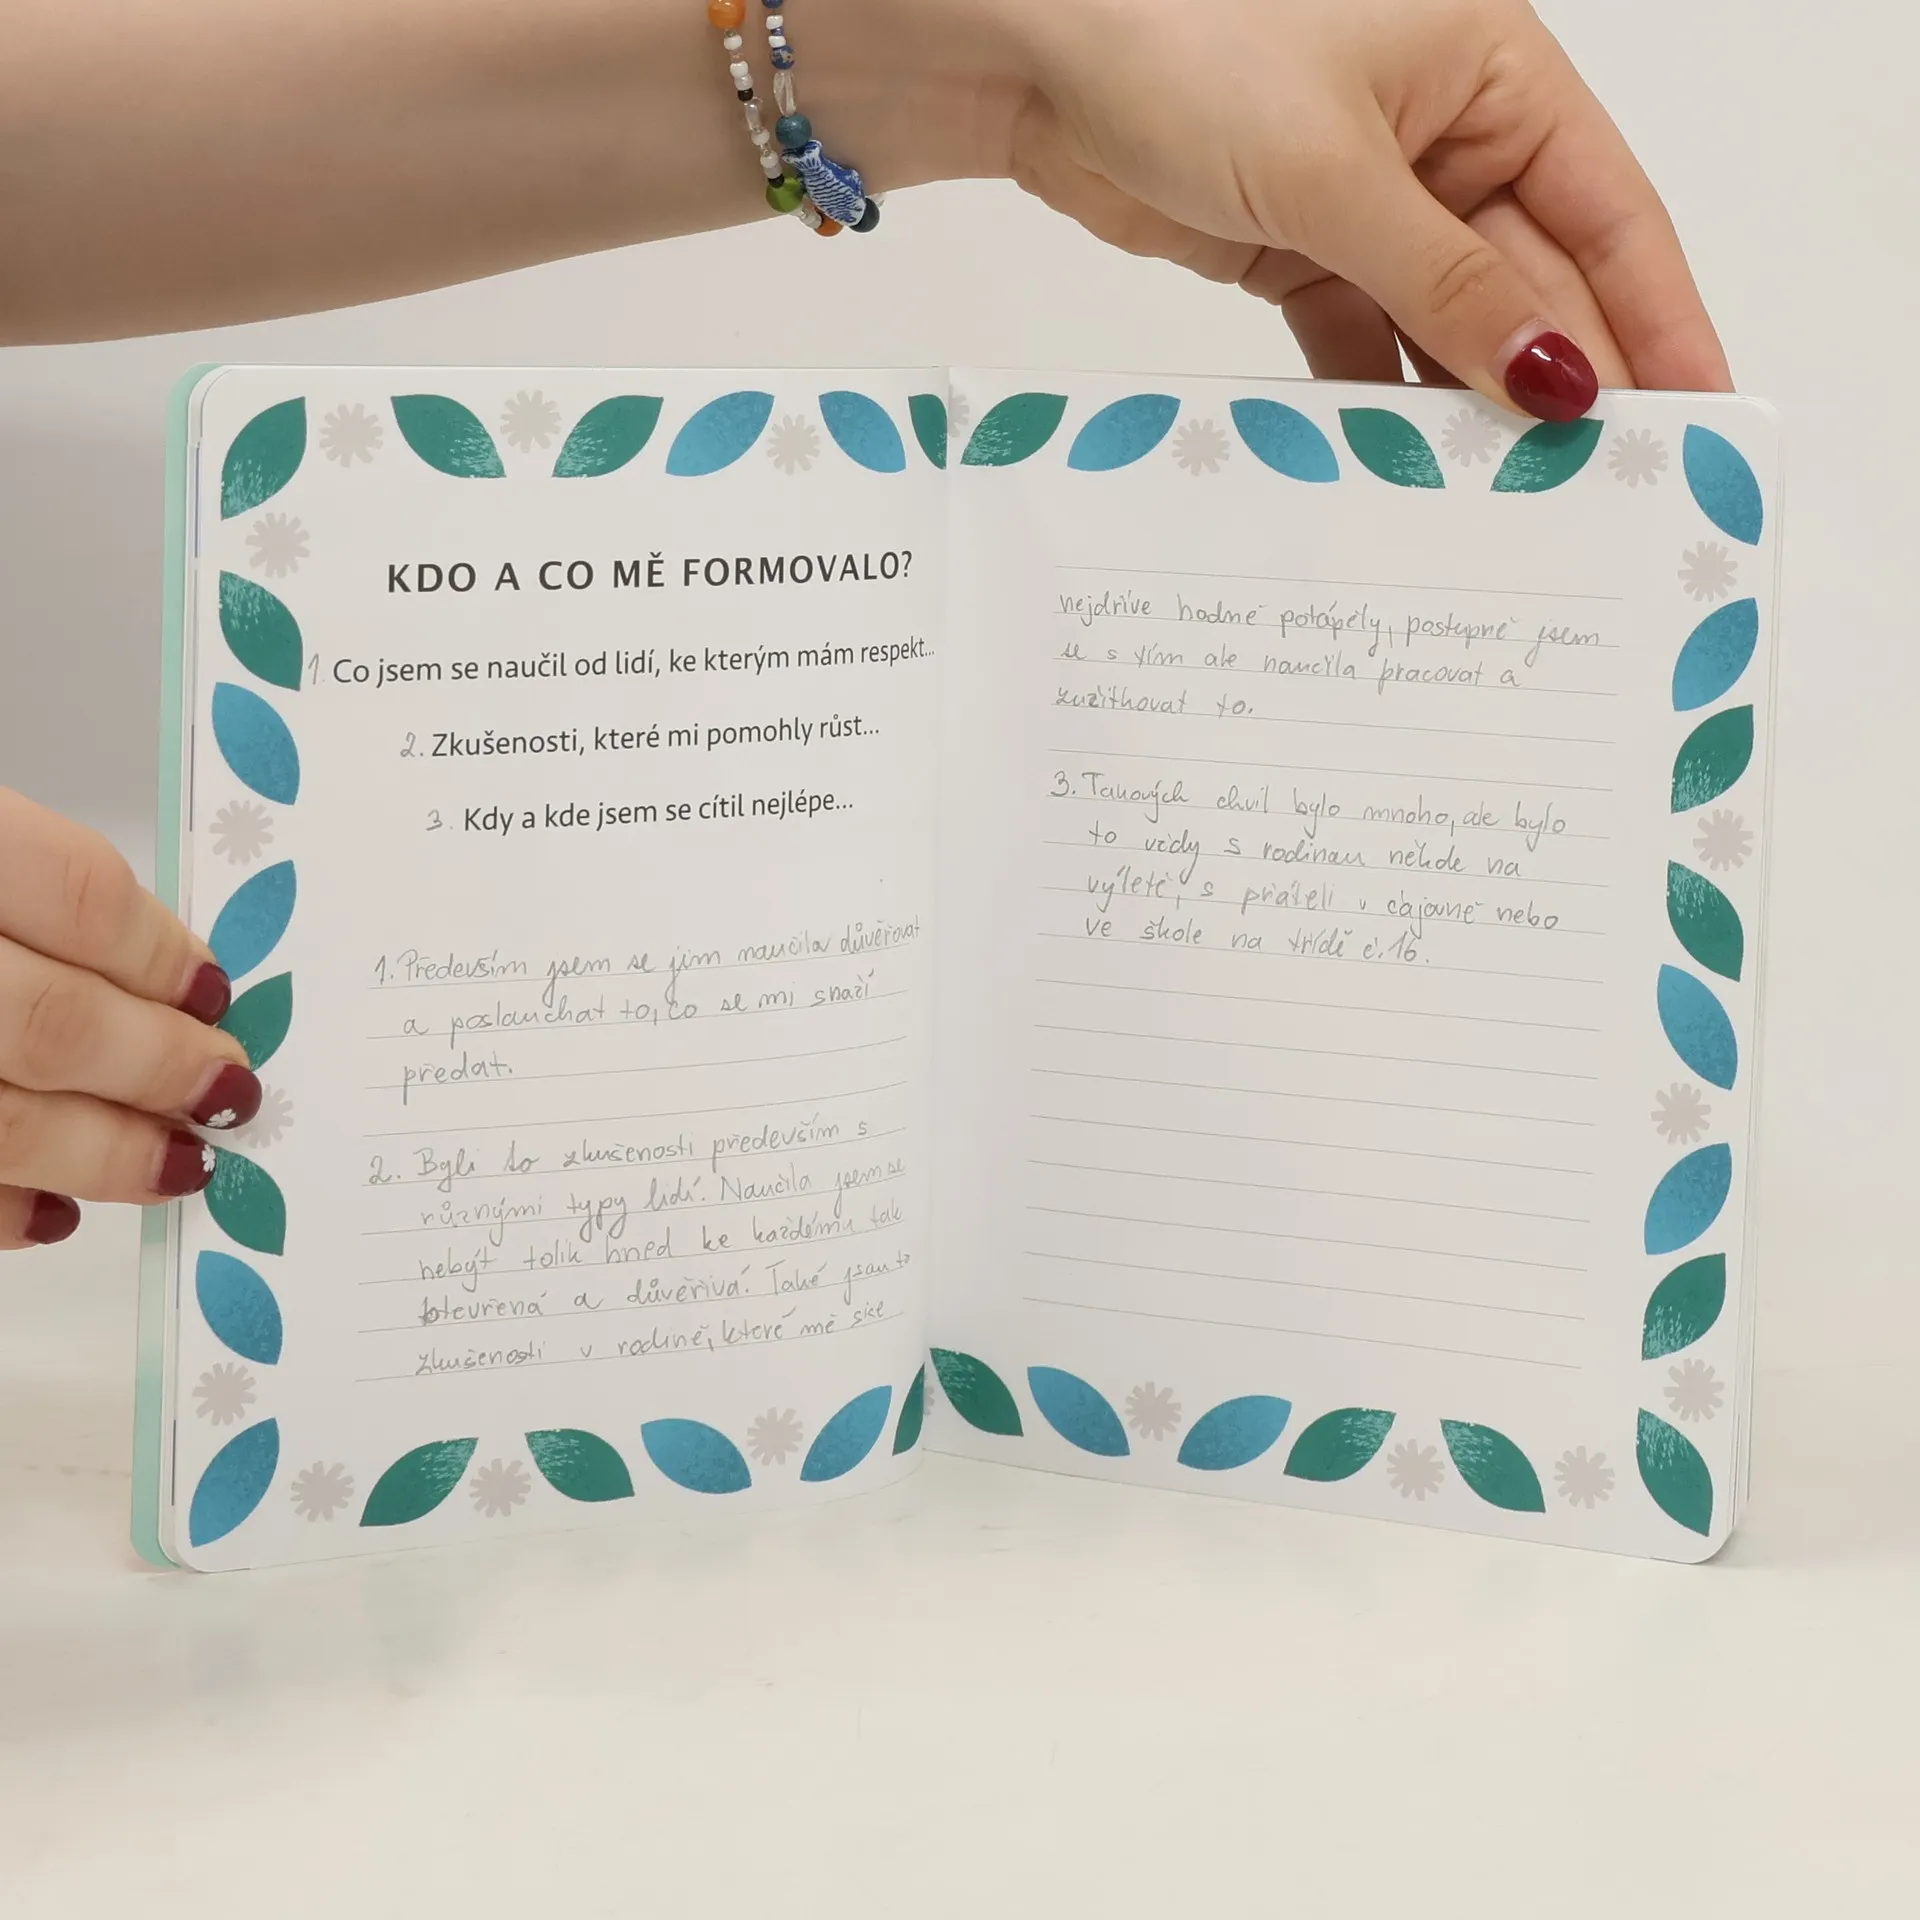 KDO A CO MĚ FORMOVALO?
1. Co jsem se naučil od lidí, ke kterým mám respekt...
2. Zkušenosti, které mi pomohly růst...
3. Kdy a kde jsem se cítil nejlépe...
1. Především jsem se jim naučila důvěřovat
a poslouchat to, co se mi snaží
předat.
2. Byli to zkušenosti především s
různými typy lidí. Naučila jsem se
nebýt tolik hned ke každému tak
otevřená a důvěřivá. Také jsou to
zkušenosti v rodině, které mě sice
nejdříve hodně potápěly, postupně jsem
se s tím ale naučila pracovat a
zužitkovat to.
3. Takových chvil bylo mnoho, ale bylo
to vždy s rodinou někde na
výletě, s přáteli v čajovně nebo
ve škole na třídě č. 16.